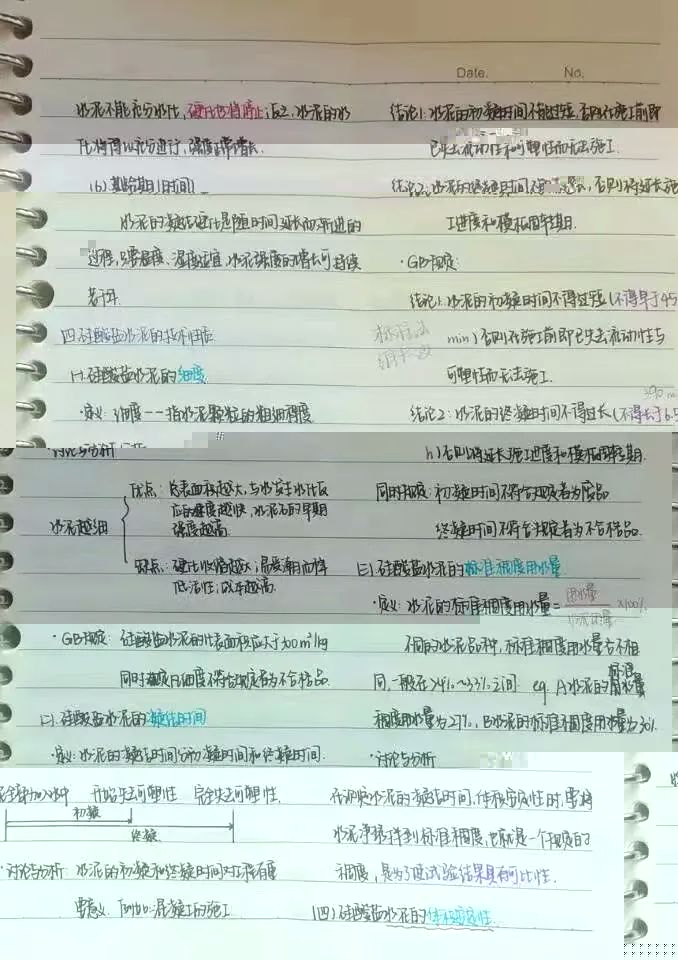 Date.
No.
水泥不能充分水化，硬化也将停止；反之，水泥的水
化将得以充分进行，强度正常增长.
(6).龄期(时间)
水泥的凝结硬化是随时间延长而渐进的
过程，只要温度、湿度适宜，水泥强度的增长可持续
若干年.
四.硅酸盐水泥的技术性质
(一).硅酸盐水泥的细度
·定义:细度——指水泥颗粒的粗细程度
讨论与分析
水泥越细
优点:总表面积越大，与水发生水化反
应的速度越快，水泥石的早期
强度越高.
缺点:硬化收缩越大，易受潮而降
低活性；成本越高.
·GB规定:硅酸盐水泥的比表面积应大于300m²/kg
同时规定凡细度不符合规定者为不合格品.
(二).硅酸盐水泥的凝结时间
·定义:水泥的凝结时间分初凝时间和终凝时间.
开始失去可塑性 完全失去可塑性.
初凝
终凝
·讨论与分析:水泥的初凝和终凝时间对工程有重
要意义.
混凝土的施工
结论1:水泥的初凝时间不能过短,否则在施工前即
已失去流动性和可塑性而无法施工.
结论2:水泥的终凝时间不
长，否则将延长施
工进度和模板周转期.
·GB规定:
结论1:水泥的初凝时间不得过短(不得早于45
min)否则在施工前即已失去流动性与
可塑性而无法施工.
390m
结论2:水泥的终凝时间不得过长(不得长于6.5
h)否则将延长施工进度和模板周转期.
同时规定:初凝时间不符合规定者为废品
终凝时间不符合规定者为不合格品.
(三).硅酸盐水泥的标准稠度用水量
·定义:水泥的标准稠度用水量=用水量/水泥用量×100%
不同的水泥品种，标准稠度用水量各不相
同,一般在24%~33%之间. eg. A水泥的标准
稠度用水量为27%，B水泥的标准稠度用水量为30%.
·讨论与分析
在测定水泥的凝结时间、体积安定性时,要将
水泥净浆拌到标准稠度,也就是一个规定的
稠度，是为了使试验结果具有可比性.
(四)硅酸盐水泥的体积安定性.